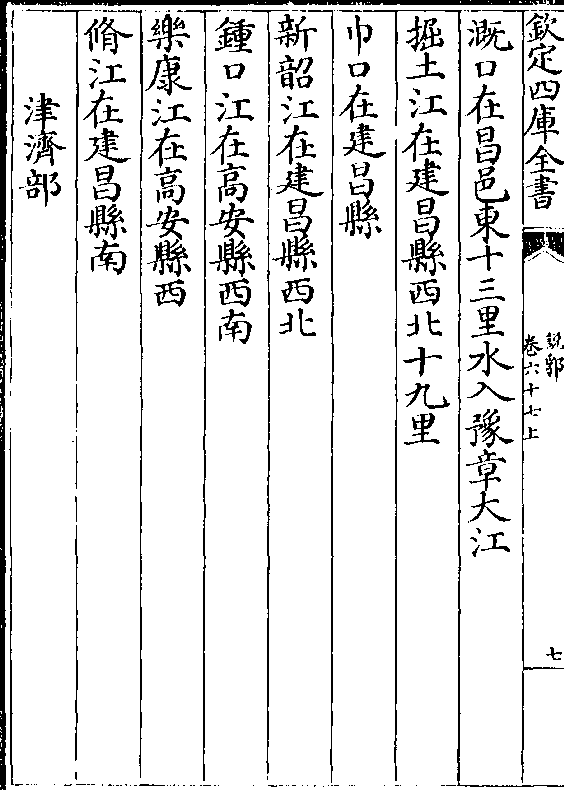 欽定四庫全書
說郛
卷六十七上
七
溉口在昌邑東十三里水入豫章大江
掘土江在建昌縣西北十九里
巾口在建昌縣
新韶江在建昌縣西北
鍾口江在高安縣西南
樂康江在高安縣西
脩江在建昌縣南
津濟部